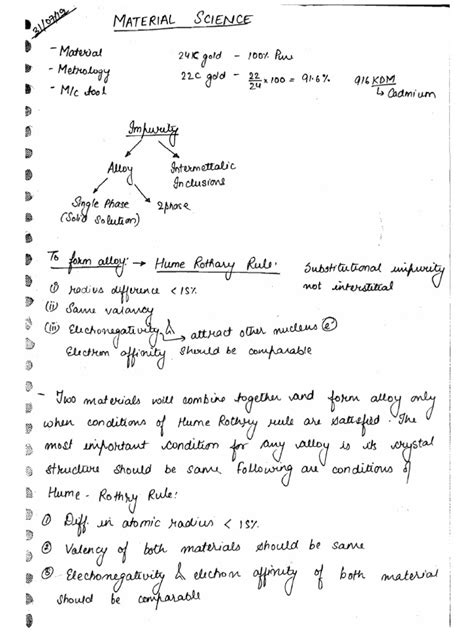 31/07/19
MATERIAL SCIENCE
- Material 24K gold - 100% Pure
- Metrology 22C gold - 22/24 x100 = 91.6% 916 KDM
- M/c tool ↳ Cadmium
Impurity
Alloy Intermettalic
Inclusions
Single Phase 2phase
(Solid Solution)
To form alloy: → Hume Rothary Rule: Substitutional impurity
(i) radius difference <15% not interstitial
(ii) Same valancy
(iii) Electronegativity & attract other nucleus e⁻
Electron affinity should be comparable
- Two materials will combine together and form alloy only
when conditions of Hume Rothry rule are satisfied. The
most important condition for any alloy is its crystal
structure should be same. Following are conditions of
Hume - Rothry Rule:
① Diff. in atomic radius < 15%
② Valency of both materials should be same
③ Electronegativity & electron affinity of both material
should be comparable